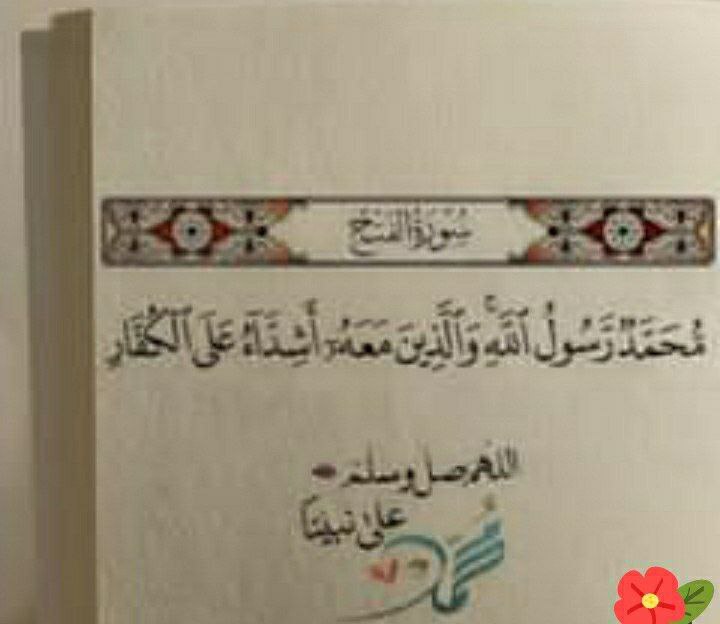 سُورَةُ الفَتْحِ
مُّحَمَّدٌ رَّسُولُ ٱللَّهِۚ وَٱلَّذِينَ مَعَهُۥٓ أَشِدَّآءُ عَلَى ٱلْكُفَّارِ
اللهم صل وسلم
على نبينا
محمد